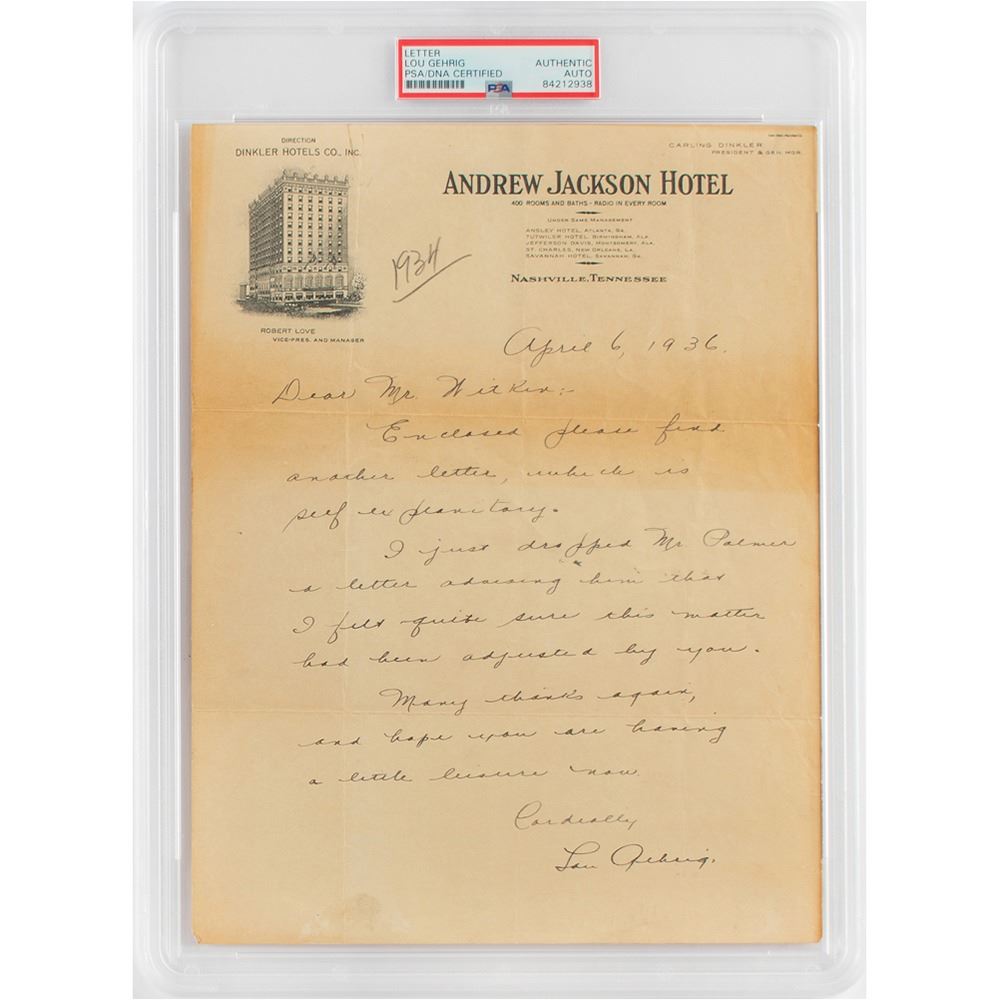 LETTER
LOU GEHRIG AUTHENTIC
PSA/DNA CERTIFIED AUTO
PSA 84212938
DIRECTION
DINKLER HOTELS CO., INC.
CARLING DINKLER
PRESIDENT & GEN. MGR.
ANDREW JACKSON HOTEL
400 ROOMS AND BATHS - RADIO IN EVERY ROOM
UNDER SAME MANAGEMENT
ANSLEY HOTEL, ATLANTA, GA.
TUTWILER HOTEL, BIRMINGHAM, ALA.
JEFFERSON DAVIS, MONTGOMERY, ALA.
ST. CHARLES, NEW ORLEANS, LA.
SAVANNAH HOTEL, SAVANNAH, GA.
NASHVILLE, TENNESSEE
1934
ROBERT LOVE
VICE-PRES. AND MANAGER
April 6, 1936.
Dear Mr. Witkin:-
Enclosed please find
another letter, which is
self explanitory.
I just dropped Mr. Palmer
a letter advising him that
I felt quite sure this matter
had been adjusted by you.
Many thanks again,
and hope you are having
a little leisure now.
Cordially
Lou Gehrig.